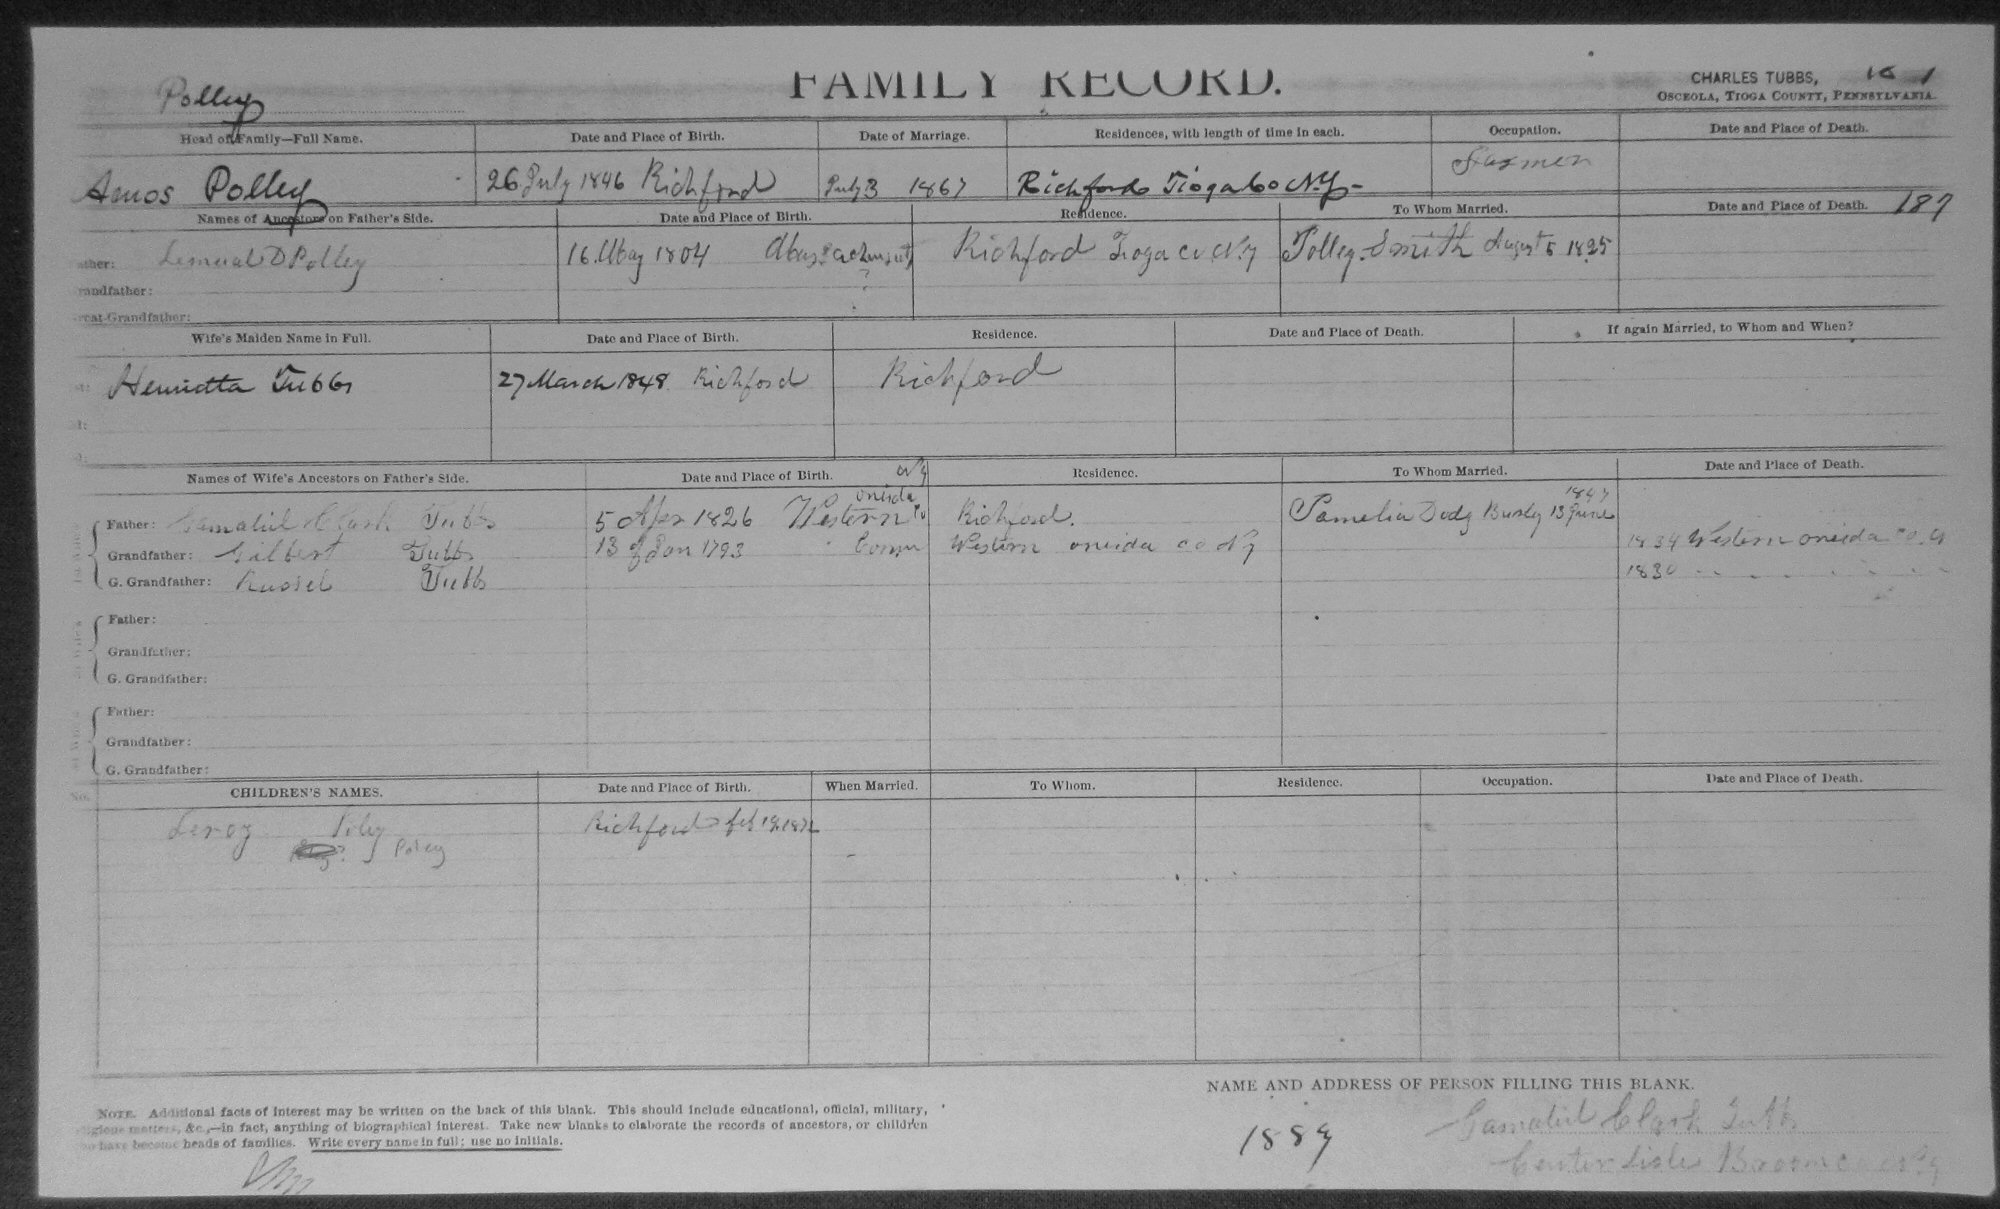 Polley
FAMILY RECORD.
CHARLES TUBBS,
OSCEOLA, TIOGA COUNTY, PENNSYLVANIA.
Head of Family—Full Name. Date and Place of Birth. Date of Marriage. Residences, with length of time in each. Occupation. Date and Place of Death.
Amos Polley 26 July 1846 Richford July 3 1867 Richford Tioga Co N.Y.
Names of Ancestors on Father's Side. Date and Place of Birth. Residence. To Whom Married. Date and Place of Death. 187
ather: Lemuel D Polley 16 May 1804 Richford Tioga Co N.Y Polley Smith August 5 1825
andfather: ?
reat-Grandfather:
Wife's Maiden Name in Full. Date and Place of Birth. Residence. Date and Place of Death. If again Married, to Whom and When?
Henrietta Tubbs 27 March 1848 Richford Richford
Names of Wife's Ancestors on Father's Side. Date and Place of Birth. N Y Residence. To Whom Married. Date and Place of Death.
Father: Gamaliel Clark Tubbs 5 Apr 1826 Western Oneida Co Richford. Pamelia Dodg 13 June 1847
Grandfather: Gilbert Tubbs 13 of Jan 1793 Conn Western oneida co N Y 1834 Western oneida co.
G. Grandfather: Russel Tubbs 1830 " " " "
Father:
Grandfather:
G. Grandfather:
Father:
Grandfather:
G. Grandfather:
No. CHILDREN'S NAMES. Date and Place of Birth. When Married. To Whom. Residence. Occupation. Date and Place of Death.
Leroy Richford feb
Polley
NAME AND ADDRESS OF PERSON FILLING THIS BLANK.
NOTE. Additional facts of interest may be written on the back of this blank. This should include educational, official, military,
igious matters, &c.,—in fact, anything of biographical interest. Take new blanks to elaborate the records of ancestors, or children
ho have become heads of families. Write every name in full; use no initials.
1889
Gamaliel Clark Tubbs
Center Lisle Broome N.Y